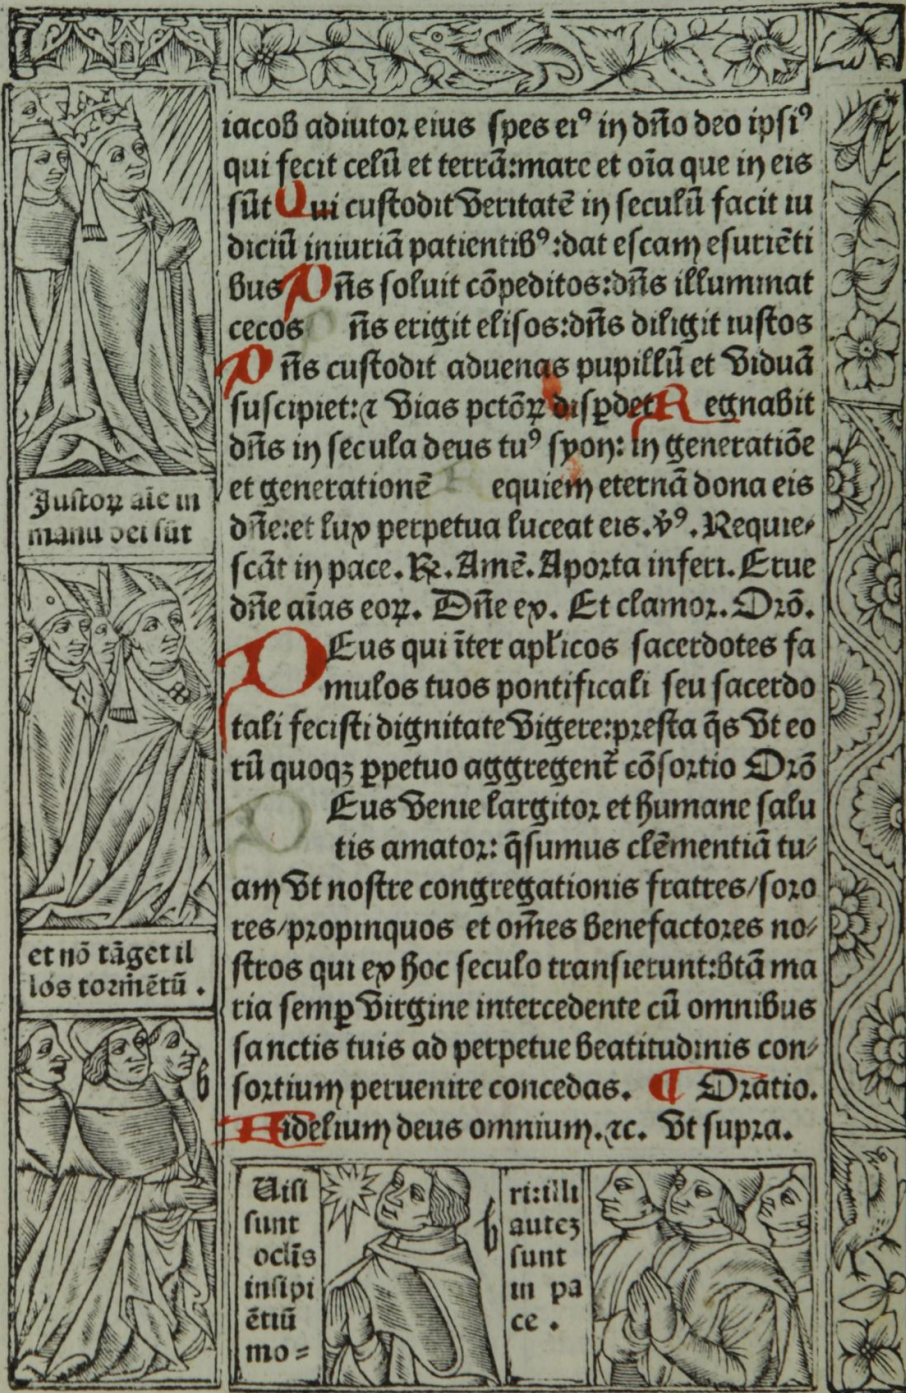 iacob adiutor eius spes ei⁹ in dño deo ipsi⁹
qui fecit celū et terrā:mare et oīa que in eis
sūt Qui custodit veritatē in seculū facit iu
diciū iniuriā patientib⁹:dat escam esuriēti
bus Dñs soluit cōpeditos:dñs illuminat
cecos ñs erigit elisos:dñs diligit iustos
Dñs custodit aduenas pupillū et viduā
suscipiet:⁊ vias pctōꝝ disꝑdet Regnabit
dñs in secula deus tu⁹ syon: in generatiōe
et generationē Requiem eternā dona eis
dñe:et lux perpetua luceat eis.ꝟ⁹.Requie⸗
scāt in pace.℟.Amē.Aporta inferi.Erue
dñe aīas eoꝝ. Dñe ex. Et clamor.Orō.
DEus qui īter apłicos sacerdotes fa
mulos tuos pontificali seu sacerdo
tali fecisti dignitate vigere:presta q̄s vt eo
rū quoqꝫ ꝑpetuo aggregent̄ cōsortio Orō
DEus venie largitor et humane salu
tis amator: q̄sumus clēmentiā tu⸗
am vt nostre congregationis fratres/soro
res/propinquos et om̄es benefactores no⸗
stros qui ex hoc seculo transierunt:btā ma
ria semꝑ virgine intercedente cū omnibus
sanctis tuis ad perpetue beatitudinis con⸗
sortium peruenire concedas. ¶ Oratio.
Fidelium deus omnium.⁊c. vt supra.
Justoꝝ aīe in
manu dei sūt
et nō tāget il
los tormētū .
b
Uisi
sunt
oclīs
insipi
ētiū
mo=
b
ri:illi
auteꝫ
sunt
in pa
ce .